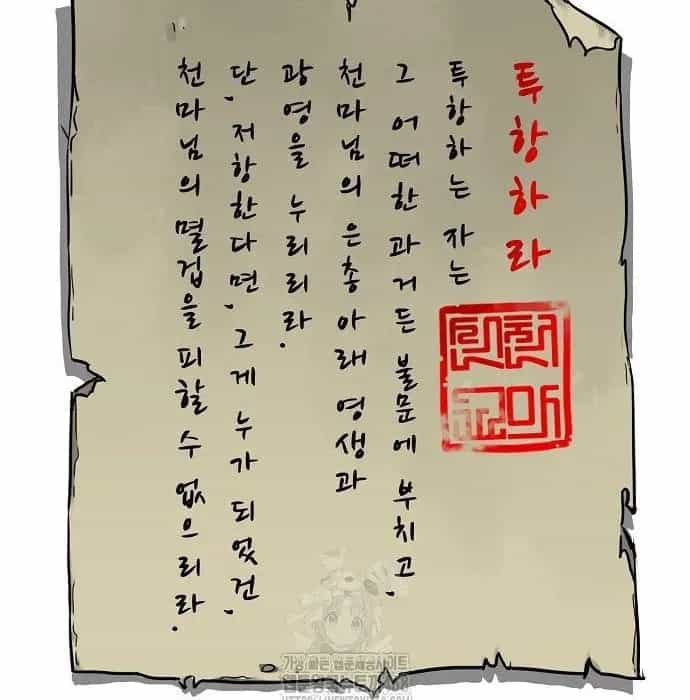 투항하라
투항하는 자는
그 어떠한 과거든 불문에 부치고,
천마님의 은총 아래 영생과
광영을 누리리라.
단, 저항한다면, 그게 누가 되었건,
천마님의 멸겁을 피할 수 없으리라.
가장 빠른 웹툰제공사이트